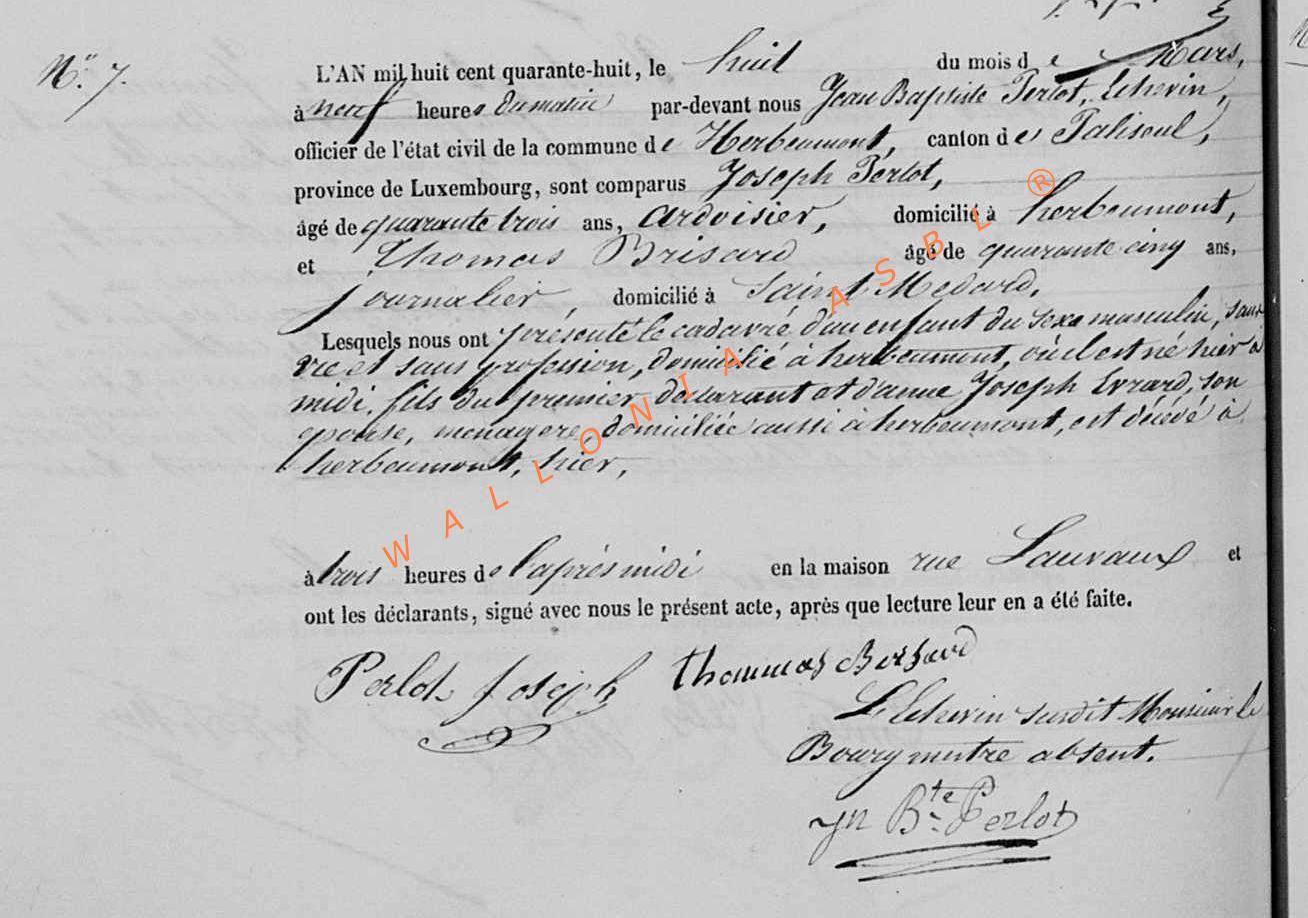 N.° 7.
L'AN mil huit cent quarante-huit, le huit du mois de Mars,
à neuf heures du matin par-devant nous Jean Baptiste Perlot, Echevin,
officier de l'état civil de la commune de Herbeumont, canton de Paliseul,
province de Luxembourg, sont comparus Joseph Perlot,
âgé de quarante trois ans, ardoisier, domicilié à herbeumont,
et Thomas Brisard âgé de quarante cinq ans,
journalier domicilié à Saint Medard.
Lesquels nous ont présenté le cadavre d'un enfant du sexe masculin, sans
vie et sans profession, domicilié à herbeumont, où il est né hier à
midi, fils du premier declarant et d'anne Joseph Evrard, son
epouse, menagere, domiciliée aussi à herbeumont, est décédé à
herbeumont, hier,
à trois heures de l'après midi en la maison rue Lauvaux et
ont les déclarants, signé avec nous le présent acte, après que lecture leur en a été faite.
Perlot Joseph
thommas Bersard
L'Echevin susdit Monsieur le
Bourgmestre absent.
Jn Bte Perlot
WALLONIA ASBL ®